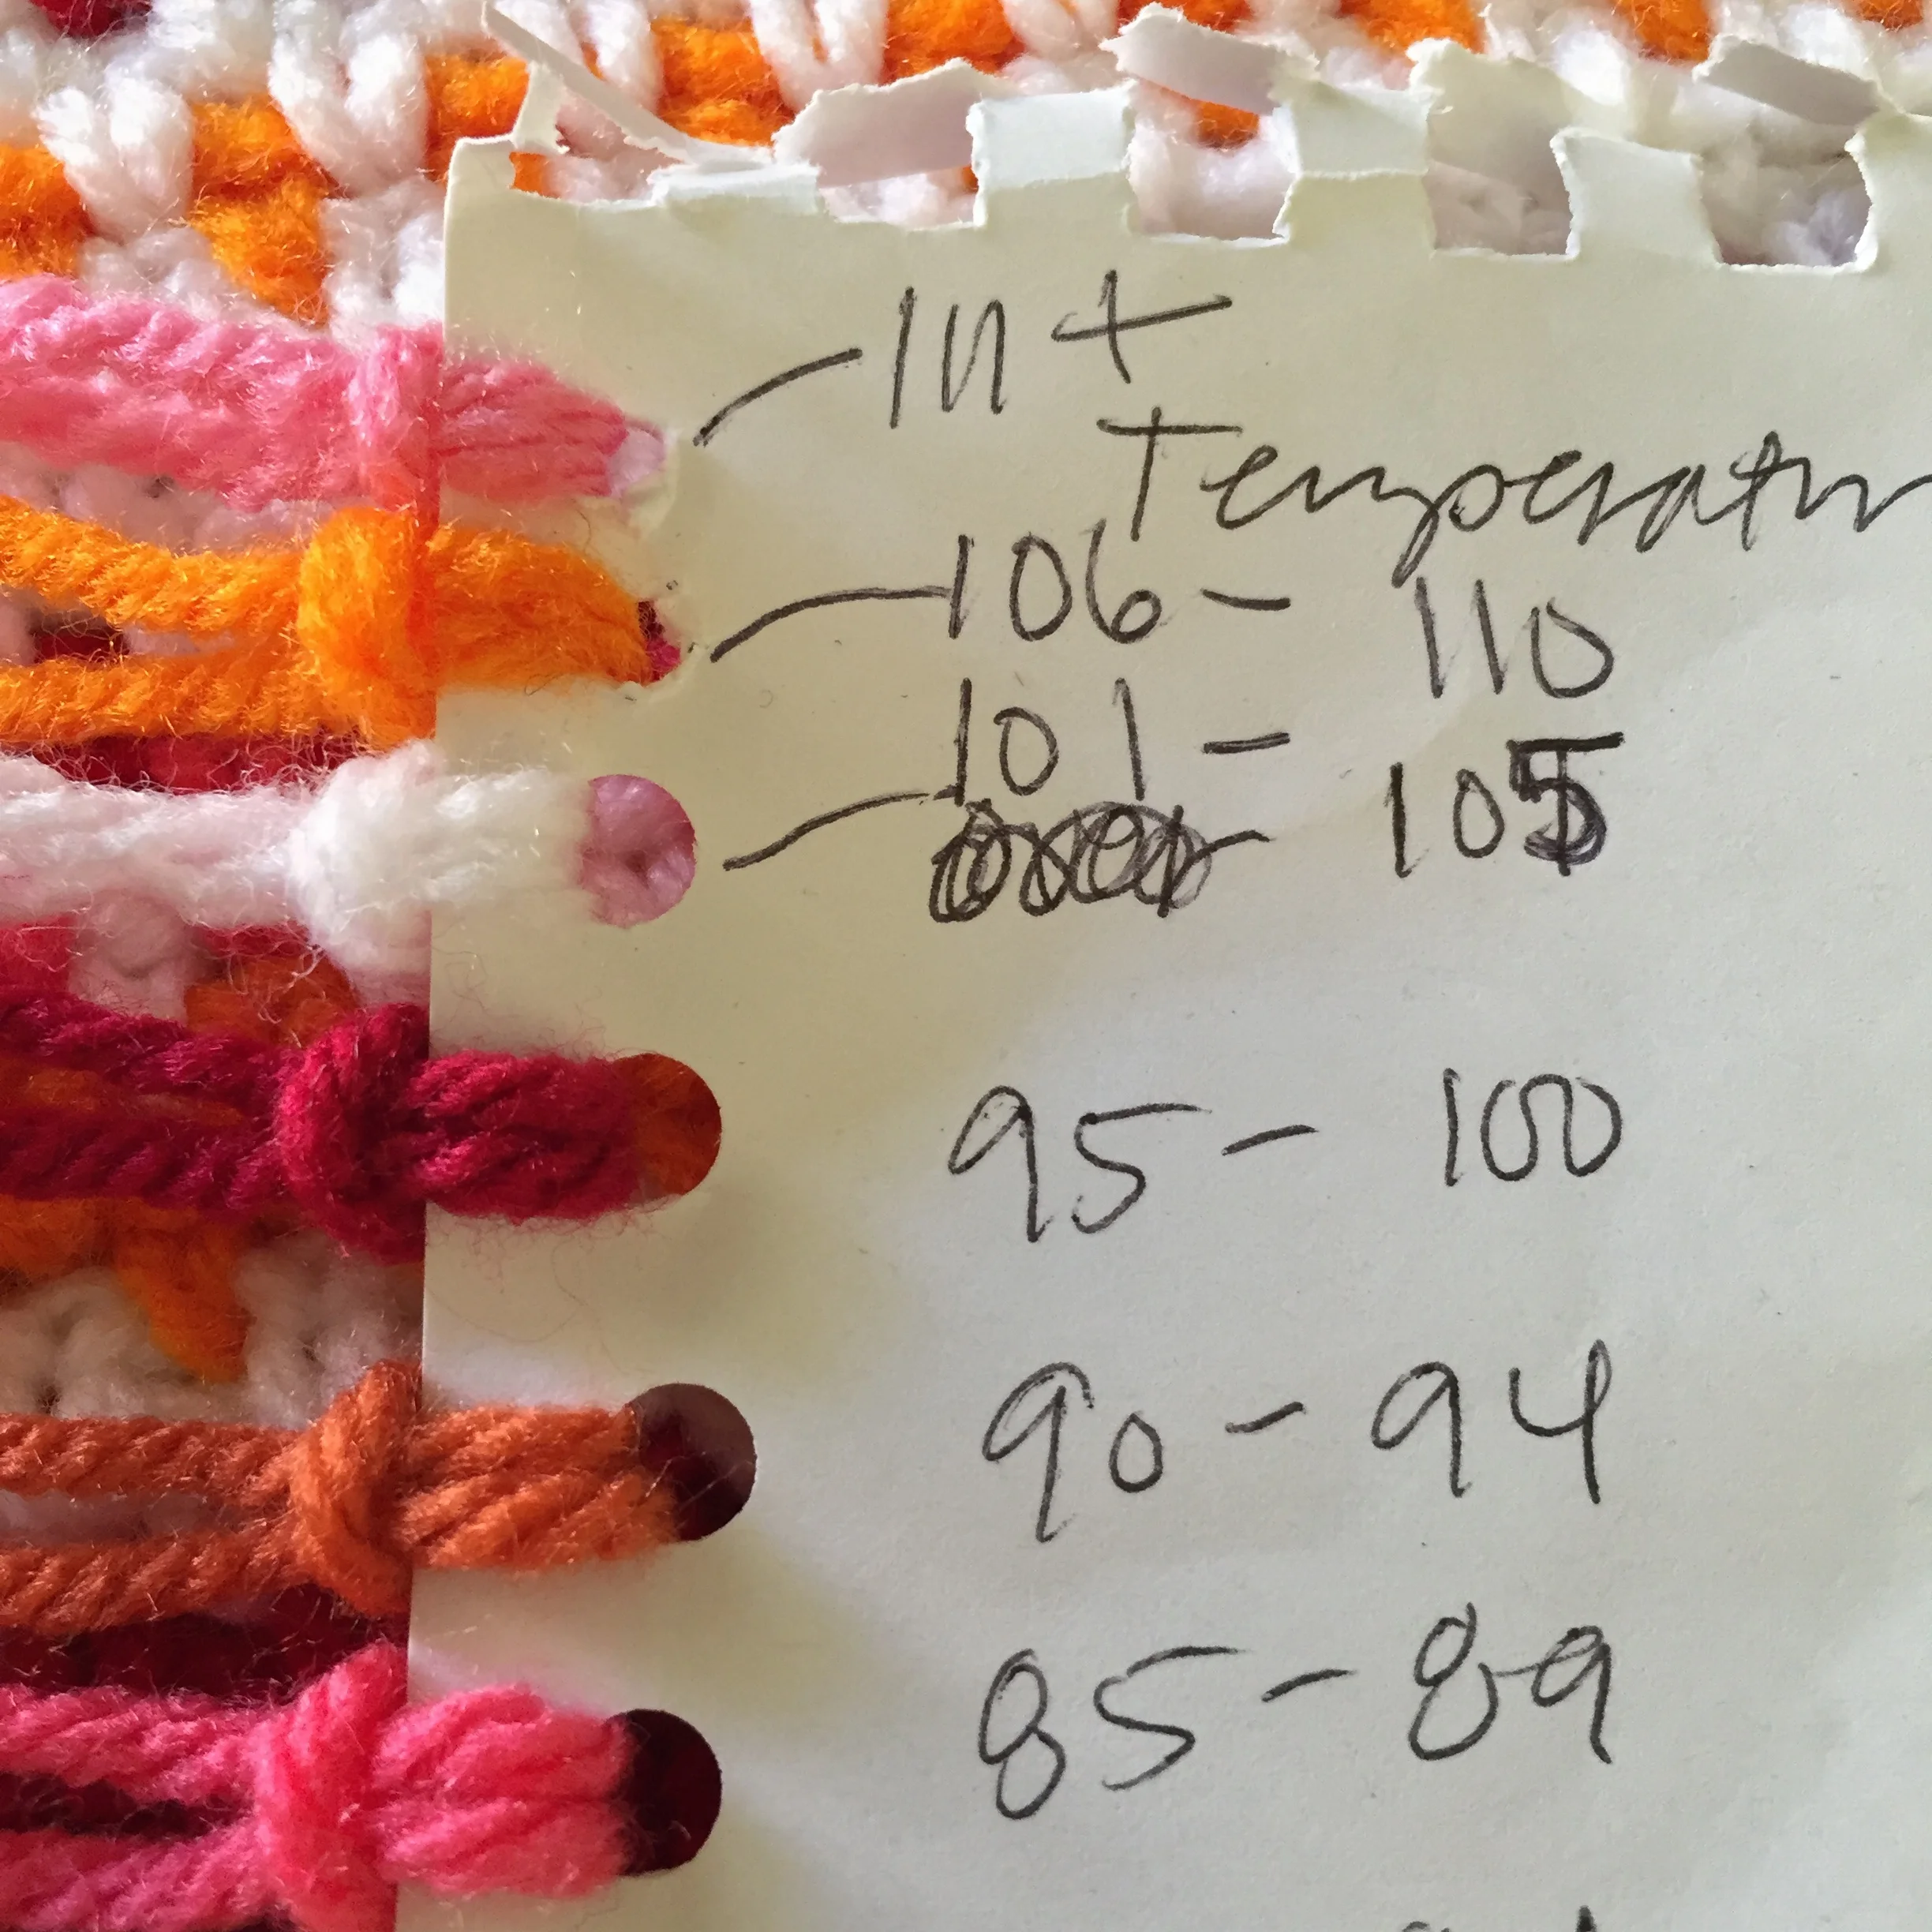 111+
Temperatur
106 - 110
101 - 105
95 - 100
90 - 94
85 - 89